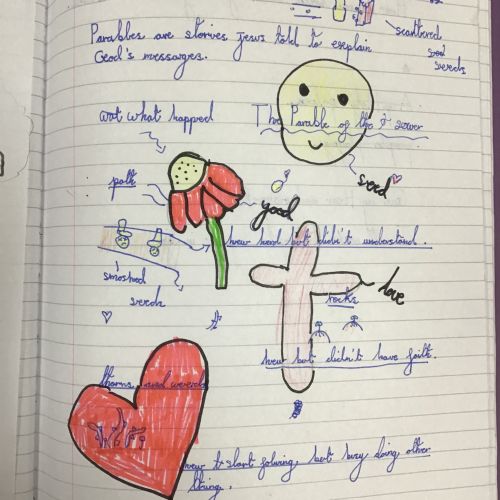 scattered
seed
seeds
Parables are stories Jesus told to explain
God's messages.
wot what happed
The Parable of the sower
seed
path
good
hew herd but didn't understand.
smoshed
seeds
love
rocks
hew but didn't have faith.
thorns and weeds
hew start folwing, but busy doing other
thing.